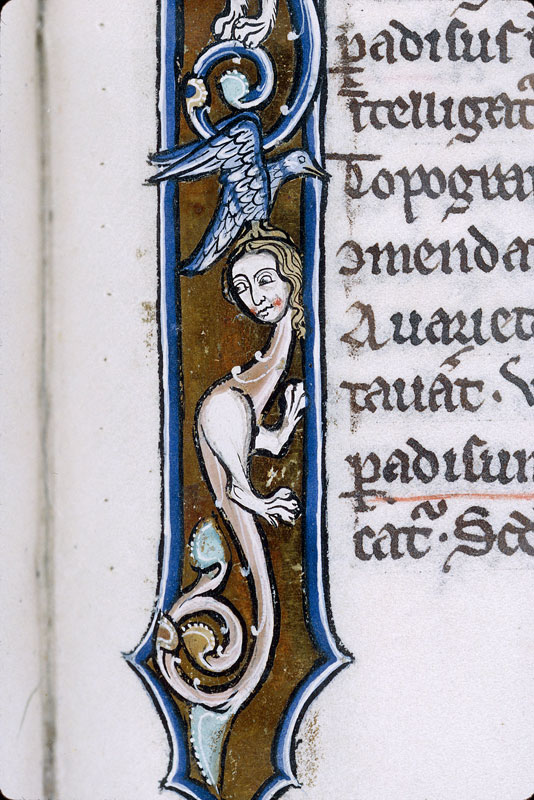 padisus
ītelligat᷑
Topogra
omenda
A uariet
tauāt. V
padisum
cat᷑. Sed